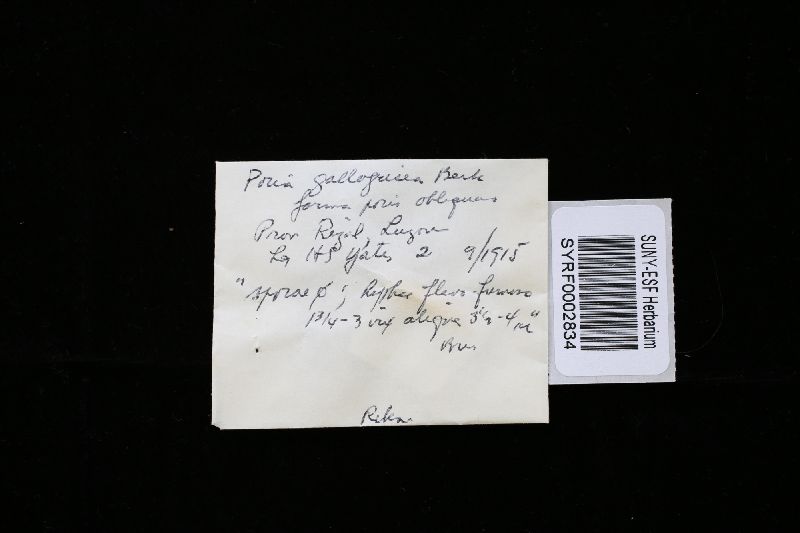 Poria gallogrisea Berk
forma poris obliquis
Prov Rizal, Luzon
Lg HS Yates 2 9/1915
"sporae ø; hyphae flavo-fumosae
1 3/4-3 vix aliqua 3 1/2-4 µ"
Bres
SUNY-ESF Herbarium
SYRF0002834